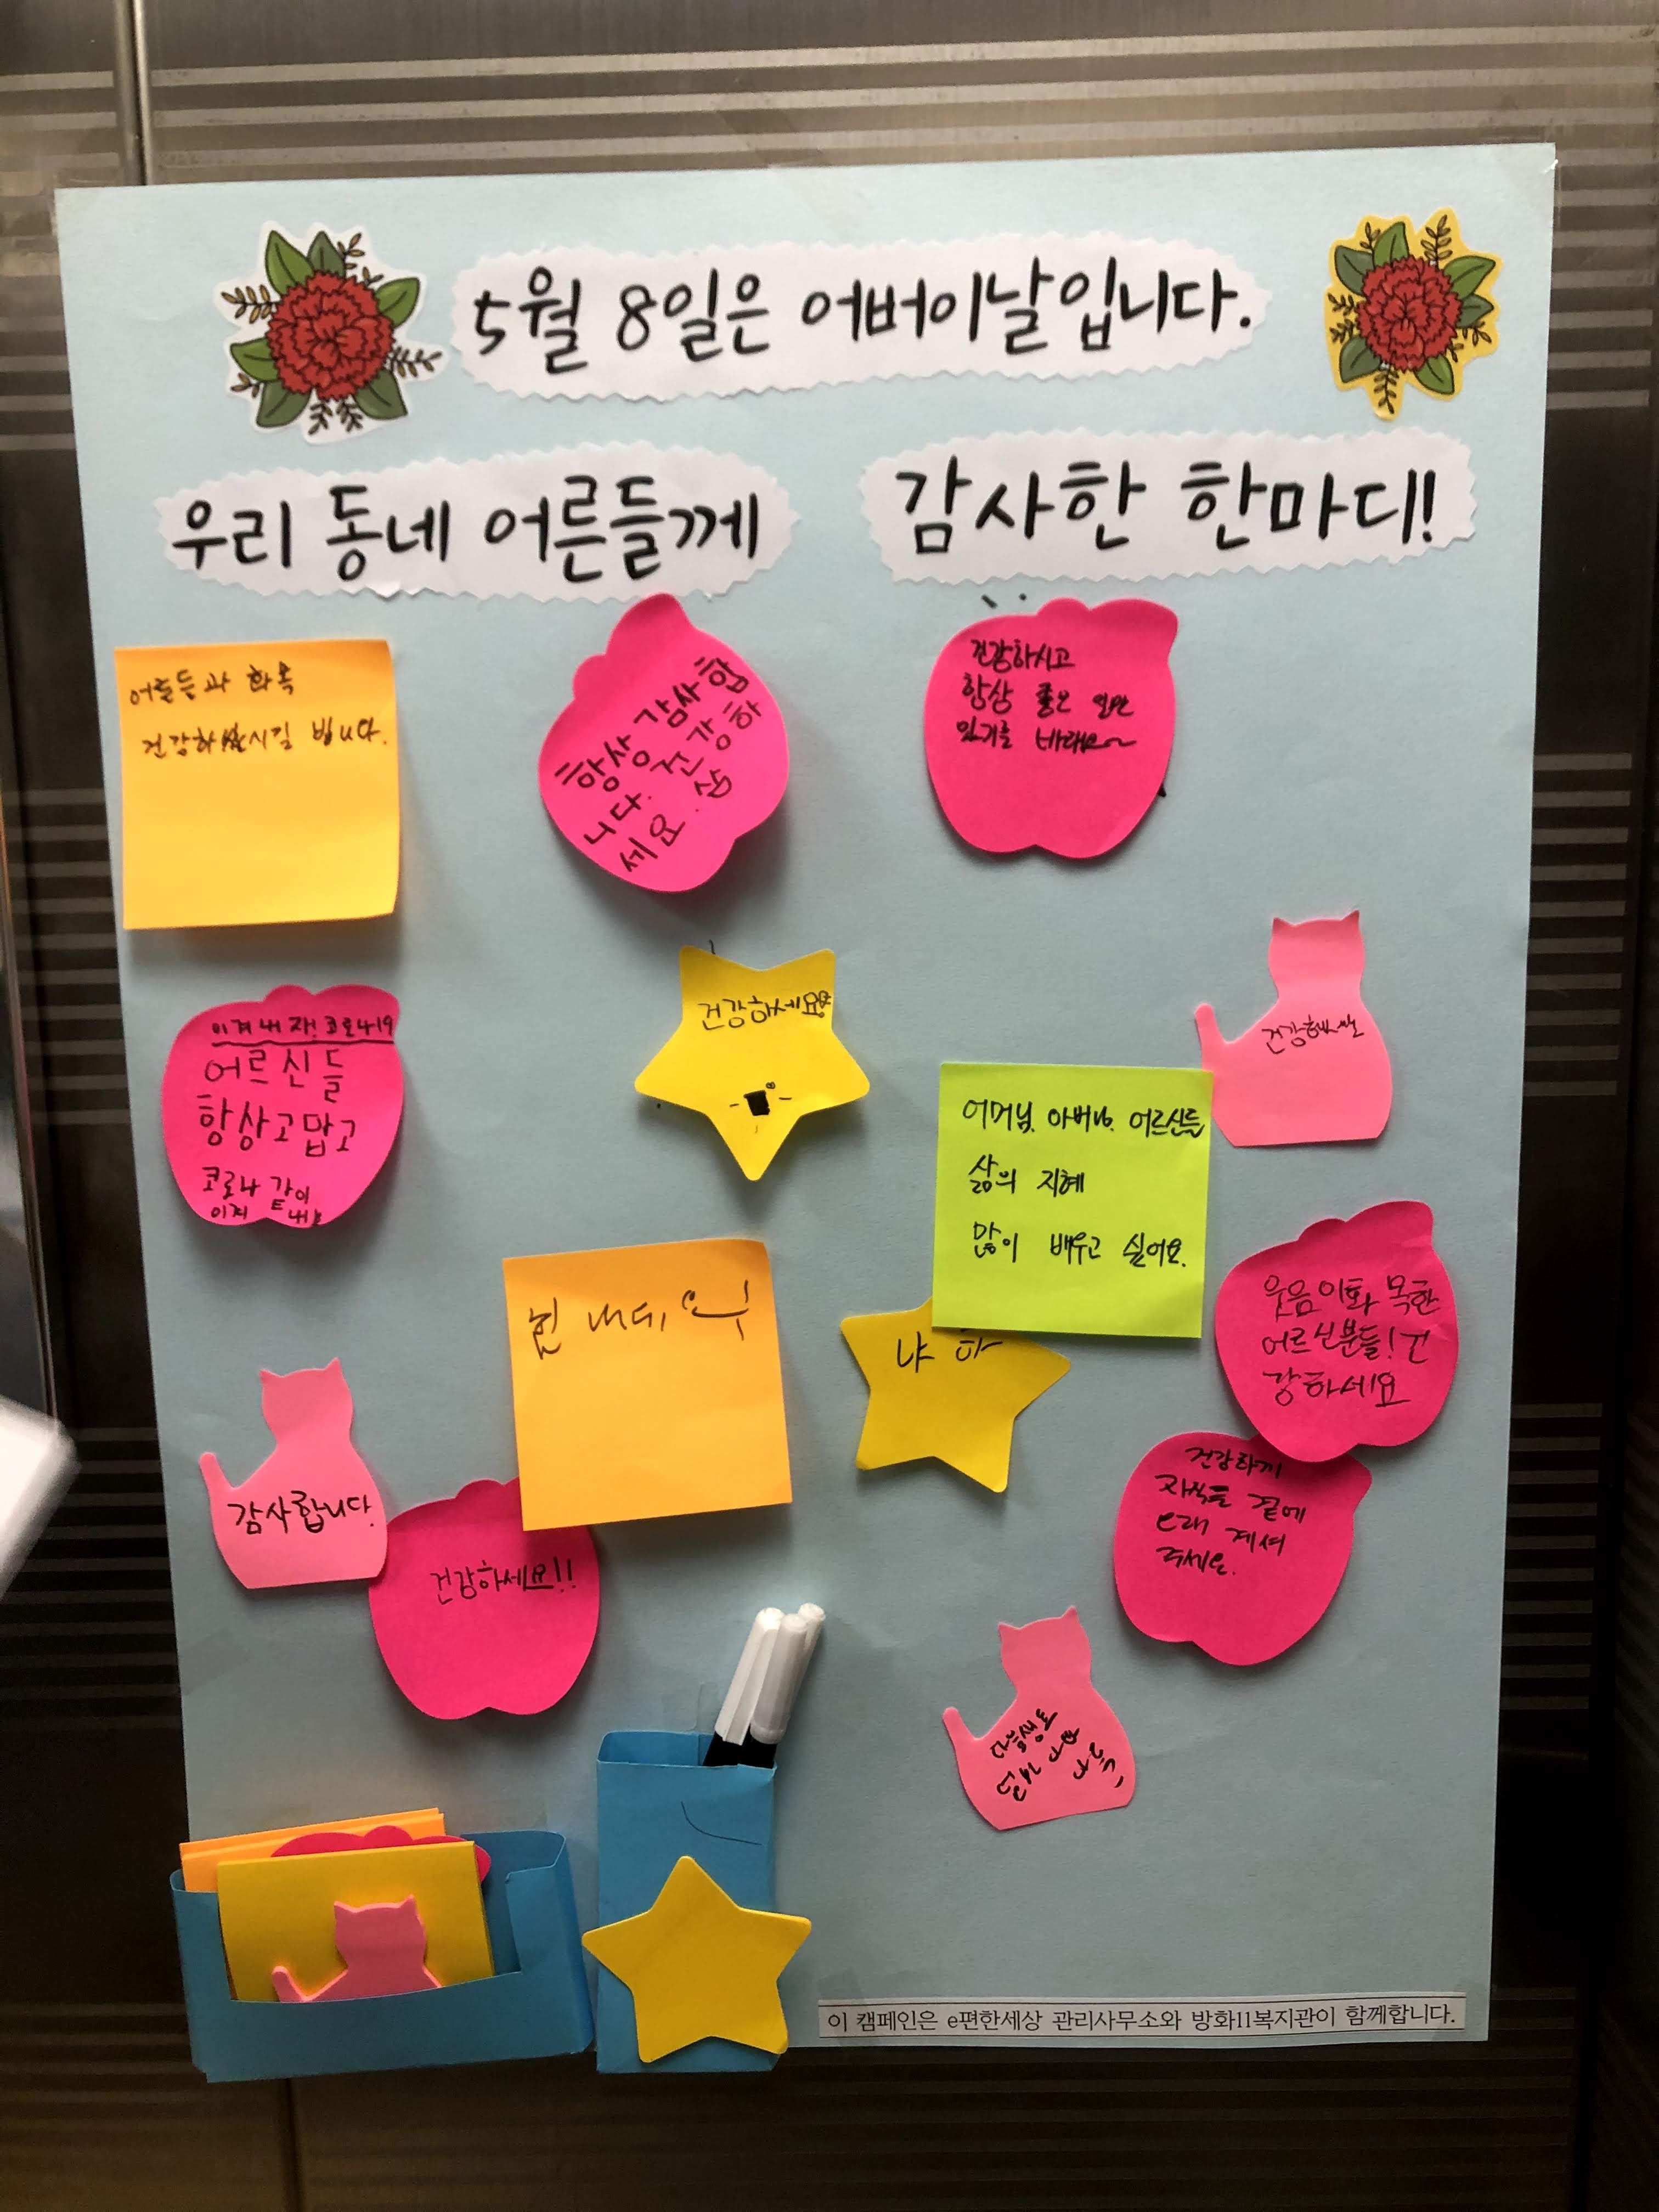 5월 8일은 어버이날입니다.
우리 동네 어른들께
감사한 한마디!
어른들과 화목
건강하시길 빕니다.
항상 감사합
니다. 건강하
세요.
건강하시고
항상 좋은 일만
있기를 바래요~
이겨내자! 코로나19
어르신들
항상고맙고
코로나 같이
이겨내요
건강하세요
건강하세요
어머님, 아버님, 어르신들
삶의 지혜
많이 배우고 싶어요.
힘내세요
냐하
웃음이화목한
어르신분들! 건
강하세요
감사합니다.
건강하세요!!
건강하게
자식들 곁에
오래 계셔
주세요.
이 캠페인은 e편한세상 관리사무소와 방화11복지관이 함께합니다.